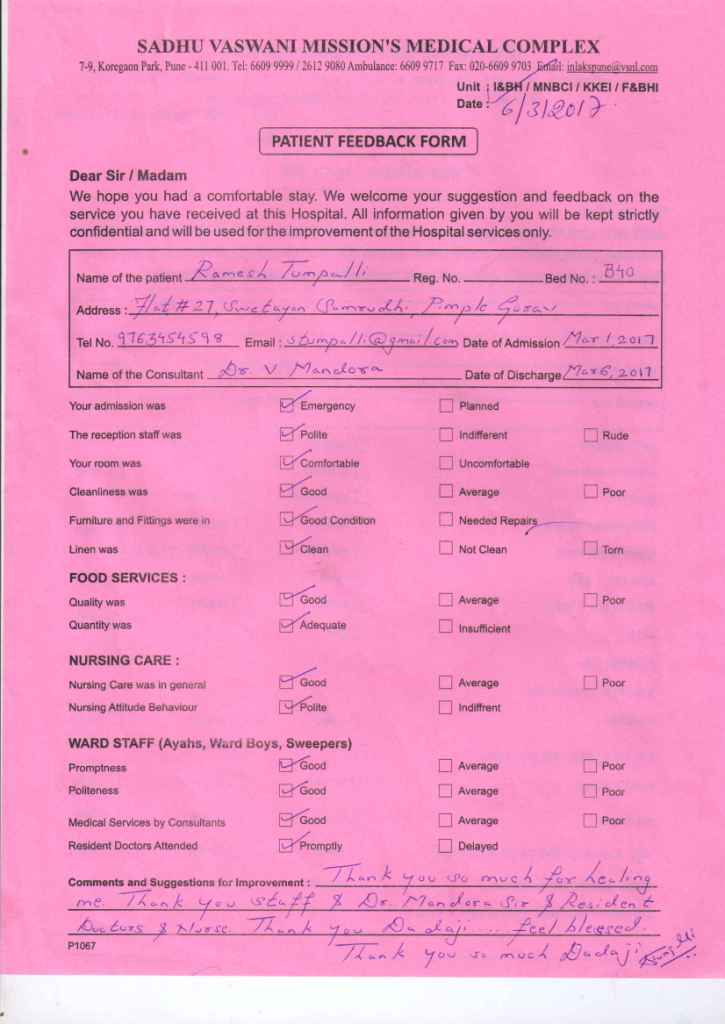 SADHU VASWANI MISSION'S MEDICAL COMPLEX
7-9, Koregaon Park, Pune - 411 001. Tel: 6609 9999 / 2612 9080 Ambulance: 6609 9717 Fax: 020-6609 9703 Email: inlakspune@vsnl.com
Unit : I&BH / MNBCI / KKEI / F&BHI
Date : 6/3/2017
PATIENT FEEDBACK FORM
Dear Sir / Madam
We hope you had a comfortable stay. We welcome your suggestion and feedback on the
service you have received at this Hospital. All information given by you will be kept strictly
confidential and will be used for the improvement of the Hospital services only.
Name of the patient Ramesh Tumpalli Reg. No. Bed No. : B40
Address : Flat # 27, Swetayan Samrudhi, Pimple Gurav
Tel No. 9763454598 Email : stumpalli@gmail.com Date of Admission Mar 1, 2017
Name of the Consultant Dr. V Mandora Date of Discharge Mar 6, 2017
Your admission was Emergency Planned
The reception staff was Polite Indifferent Rude
Your room was Comfortable Uncomfortable
Cleanliness was Good Average Poor
Furniture and Fittings were in Good Condition Needed Repairs
Linen was Clean Not Clean Torn
FOOD SERVICES :
Quality was Good Average Poor
Quantity was Adequate Insufficient
NURSING CARE :
Nursing Care was in general Good Average Poor
Nursing Attitude Behaviour Polite Indiffrent
WARD STAFF (Ayahs, Ward Boys, Sweepers)
Promptness Good Average Poor
Politeness Good Average Poor
Medical Services by Consultants Good Average Poor
Resident Doctors Attended Promptly Delayed
Comments and Suggestions for Improvement : Thank you so much for healing
me. Thank you staff & Dr. Mandora Sir & Resident
Doctors & Nurse. Thank you Dadaji .... feel blessed.
P1067 Thank you so much Dadaji